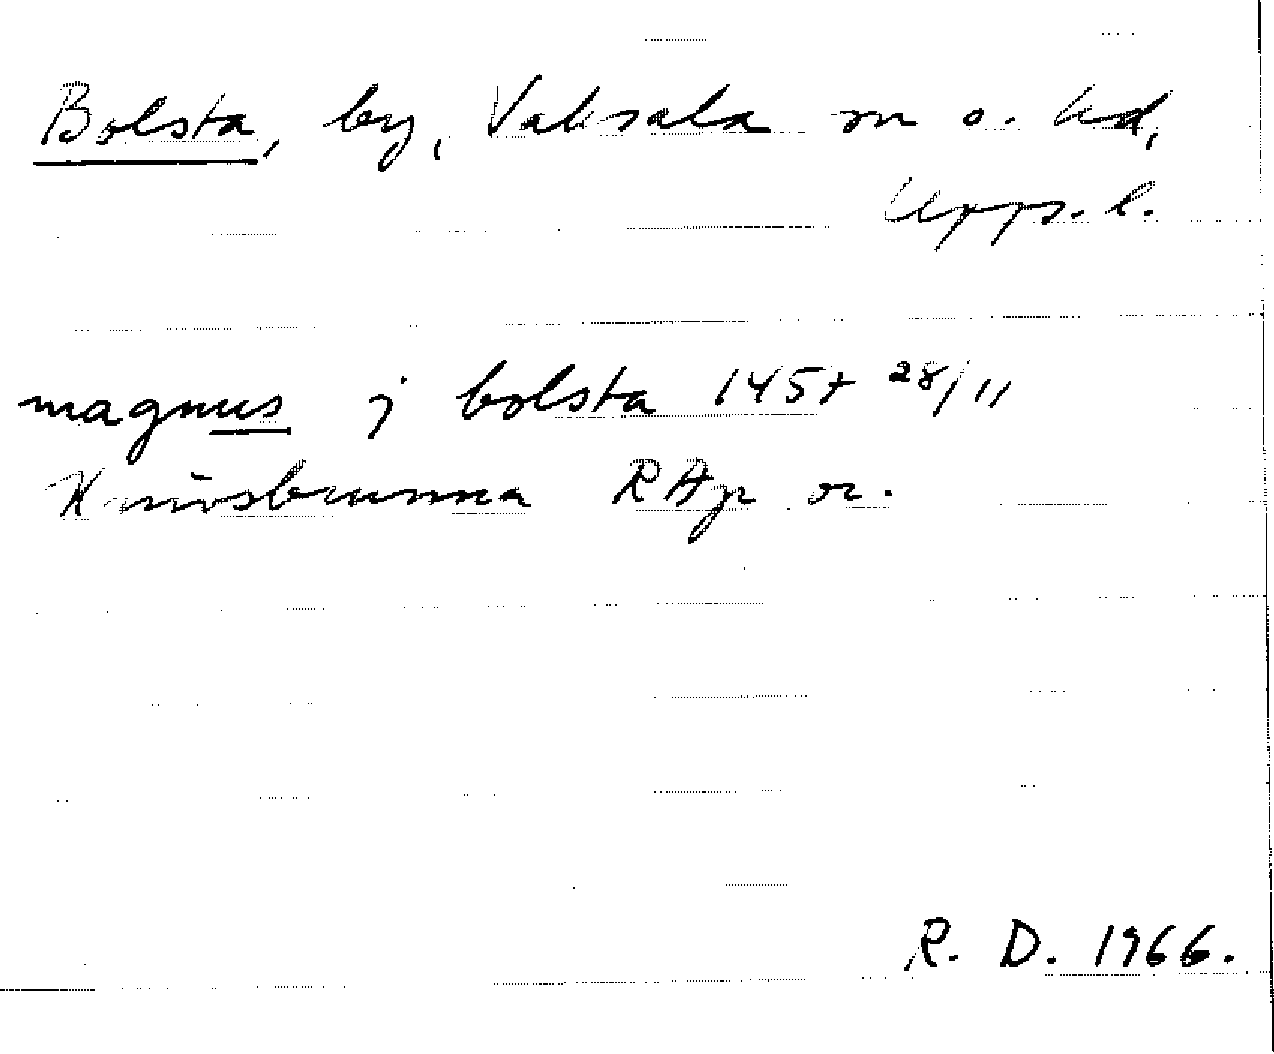 Bolsta, by, Vaksala sn o. hd,
Upps. l.
magnus j bolsta 1457 28/11
Knivsbrunna RAp or.
R. D. 1966.